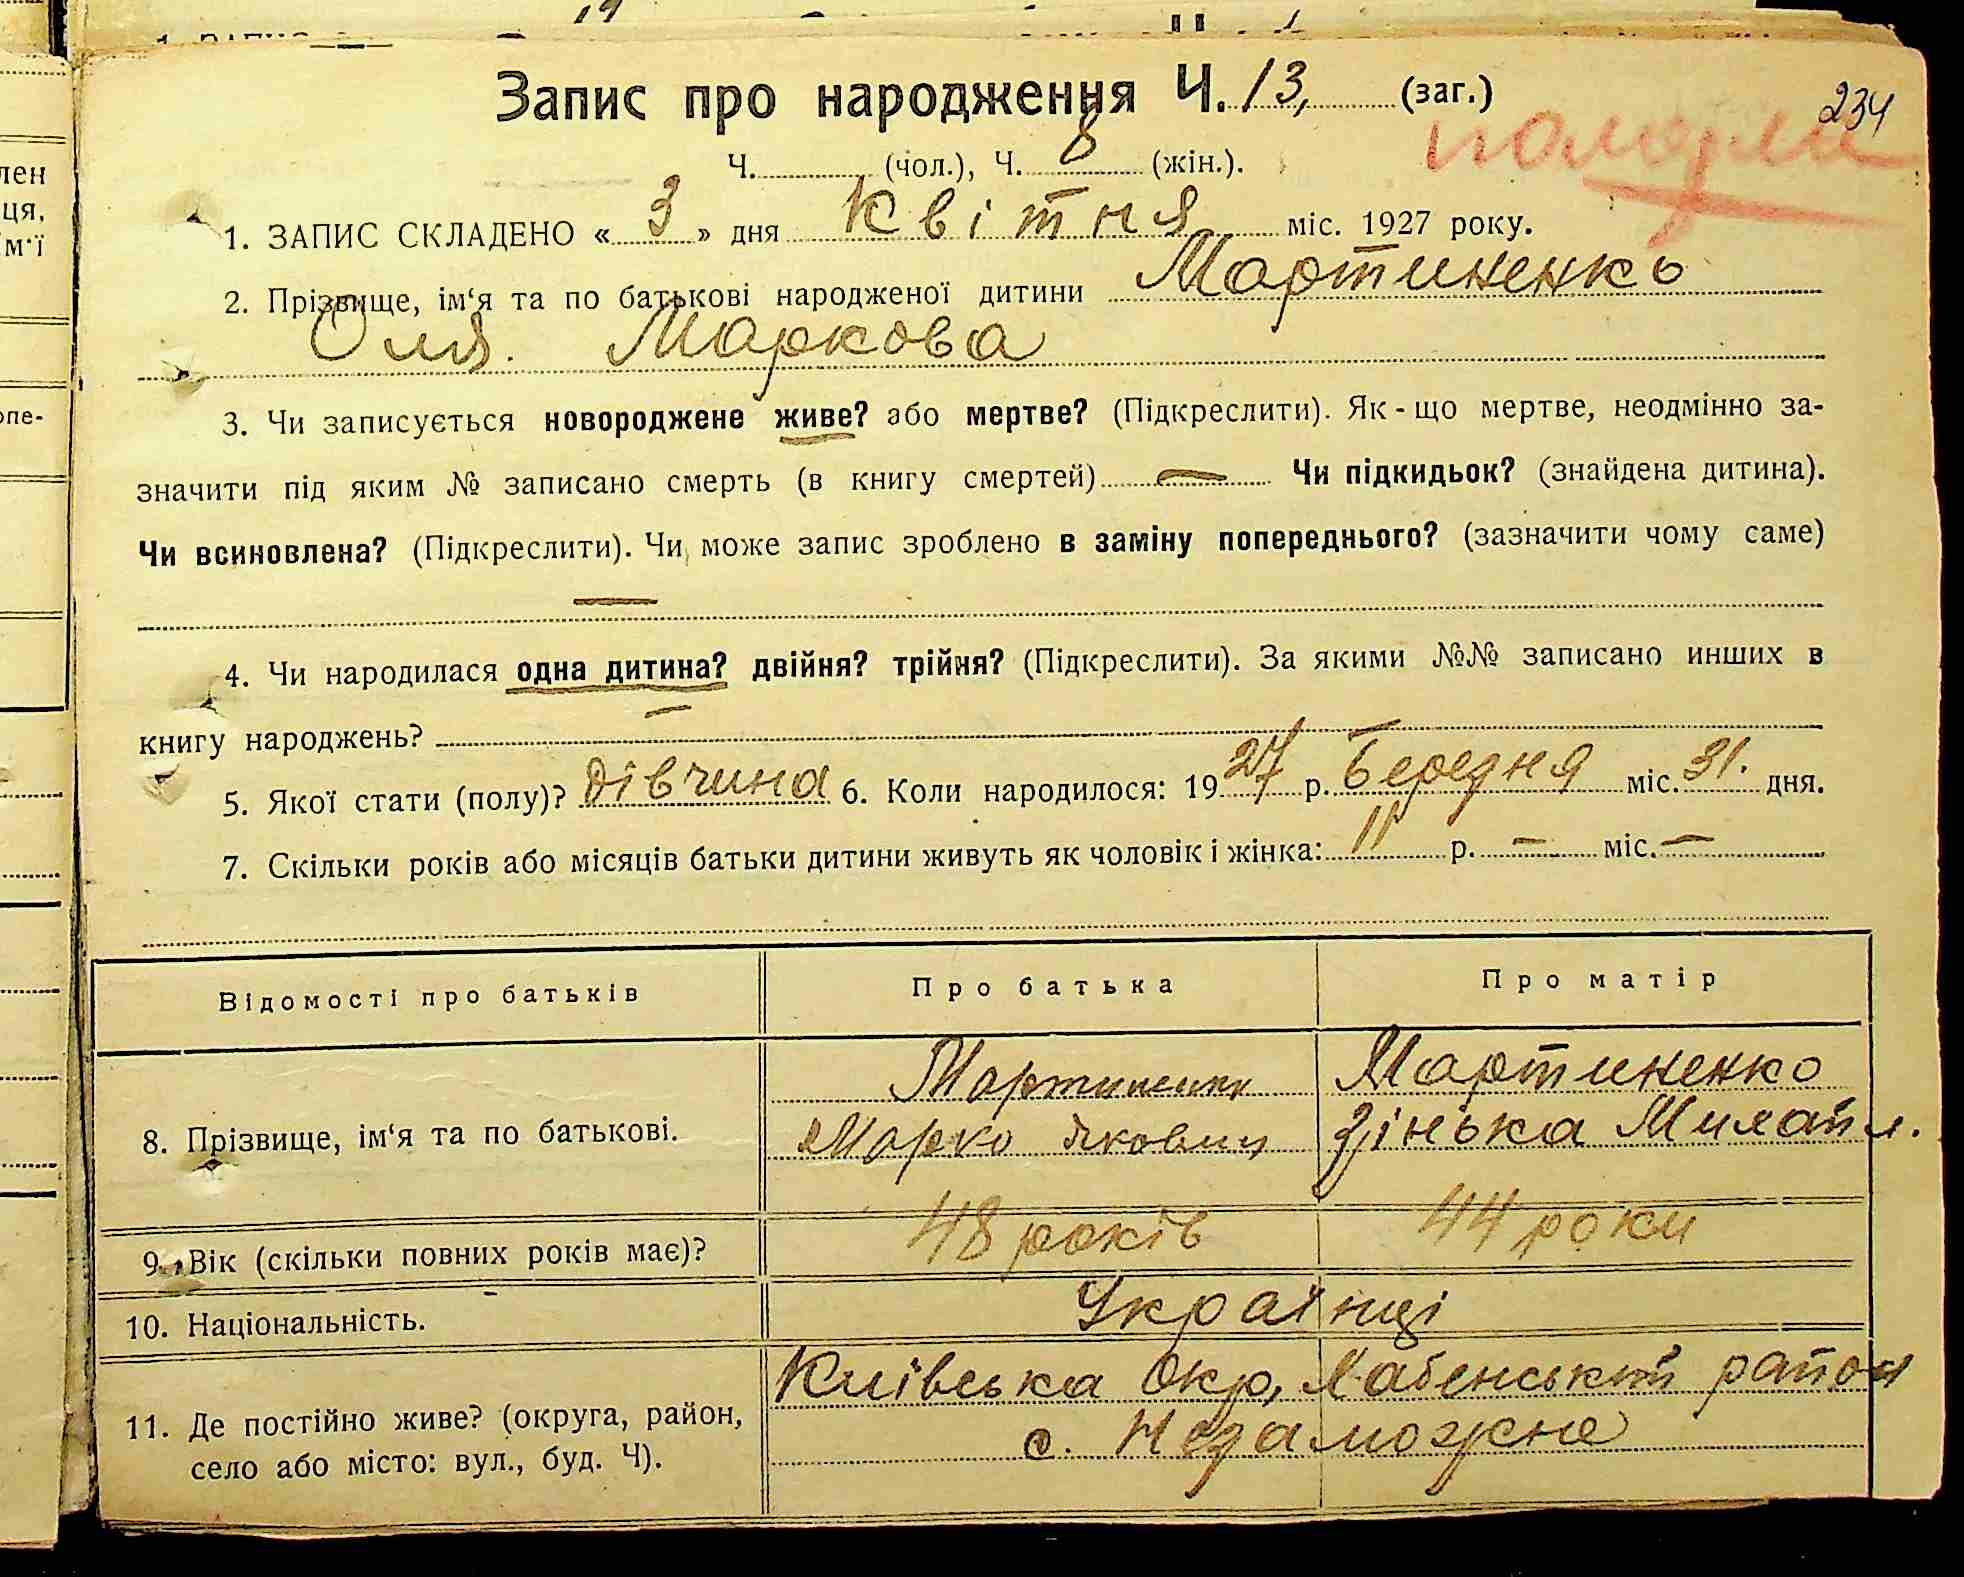 Запис про народження Ч. 13, (заг.)
234
померла
Ч. (чол.), Ч. 8 (жін.).
1. ЗАПИС СКЛАДЕНО « 3 » дня Квітня міс. 1927 року.
2. Прізвище, ім‘я та по батькові народженої дитини Мартиненко
Оля. Маркова
3. Чи записується новороджене живе? або мертве? (Підкреслити). Як - що мертве, неодмінно за-
значити під яким № записано смерть (в книгу смертей) — Чи підкидьок? (знайдена дитина).
Чи всиновлена? (Підкреслити). Чи може запис зроблено в заміну попереднього? (зазначити чому саме)
—
4. Чи народилася одна дитина? двійня? трійня? (Підкреслити). За якими №№ записано инших в
книгу народжень? —
5. Якої стати (полу)? дівчина 6. Коли народилося: 1927 р. Березня міс. 31. дня.
7. Скільки років або місяців батьки дитини живуть як чоловік і жінка: 11 р. — міс. —
Відомості про батьків Про батька Про матір
8. Прізвище, ім‘я та по батькові. Мартиненко Мартиненко
Марко Якович Зінька Михайл.
9. Вік (скільки повних років має)? 48 років 44 роки
10. Національність. Українці
11. Де постійно живе? (округа, район, Київська Окр, Хабенський район
село або місто: вул., буд. Ч). с. Незаможне
лен
ця,
м‘ї
опе-